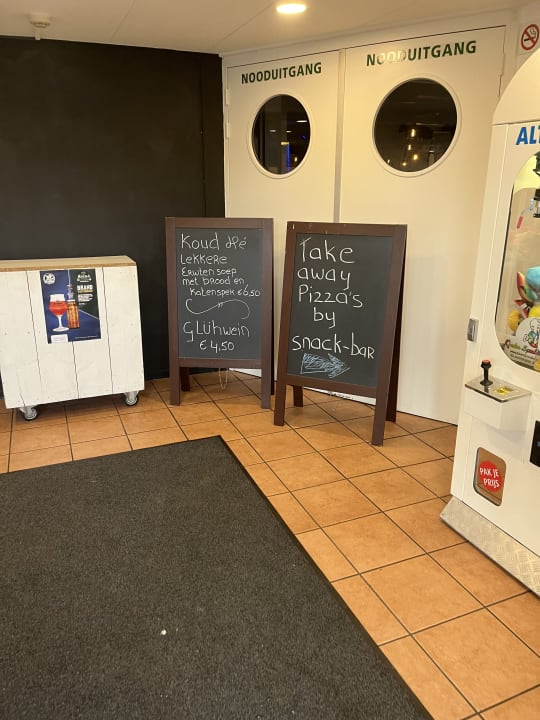 NOODUITGANG
NOODUITGANG
Koud hé
LEKKERE
ERwten soep
met brood en
Katenspek € 6,50
GLühwein
€ 4,50
Take
away
Pizza's
by
snack-bar
BRAND
ALT
PAK JE
PRIJS